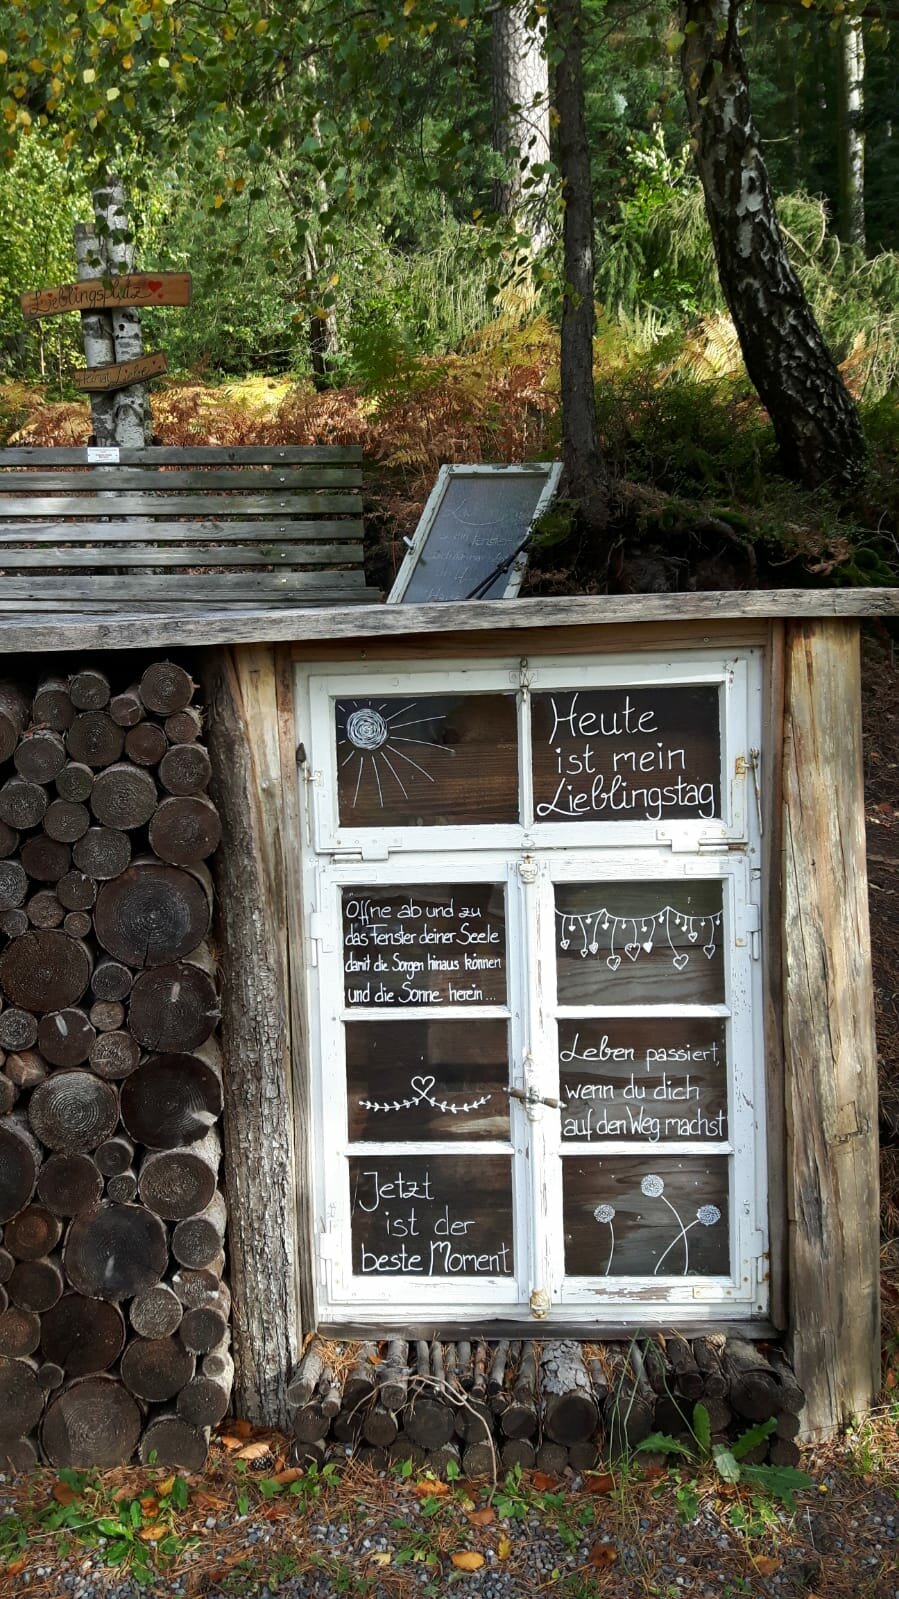 Lieblingsplatz
Heimat Liebe
Heute
ist mein
Lieblingstag
Öffne ab und zu
das Fenster deiner Seele
damit die Sorgen hinaus können
und die Sonne herein...
Leben passiert,
wenn du dich
auf den Weg machst
Jetzt
ist der
beste Moment